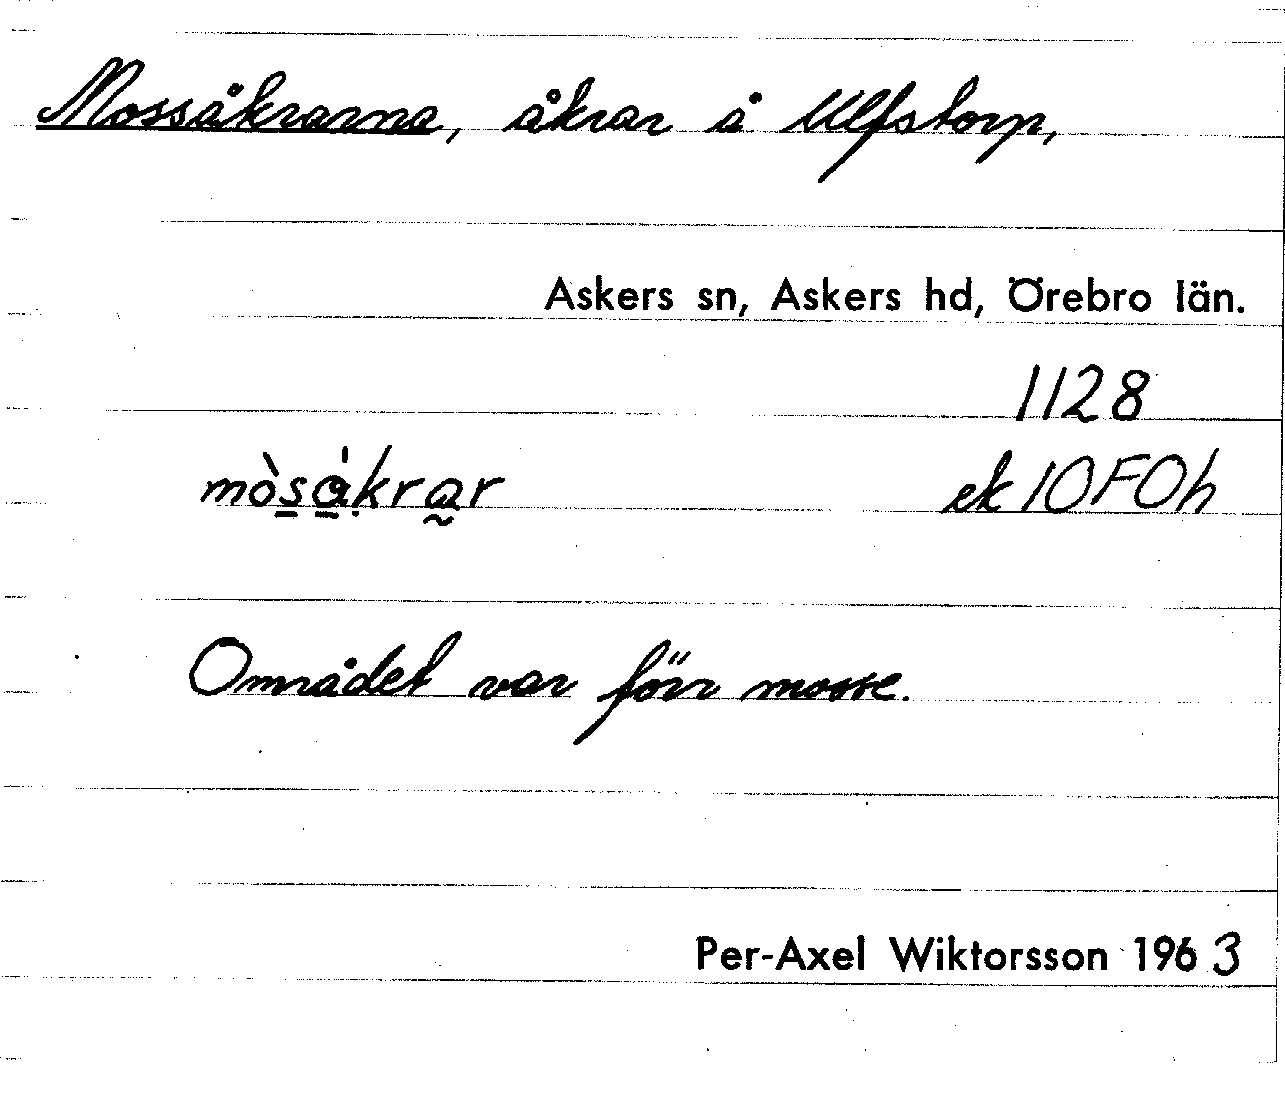 Mossåkrarna, åkrar å Ulfstorp,
Askers sn, Askers hd, Örebro län.
1128
mòsåkrar ek 10F0h
Området var förr mosse.
Per-Axel Wiktorsson 1963